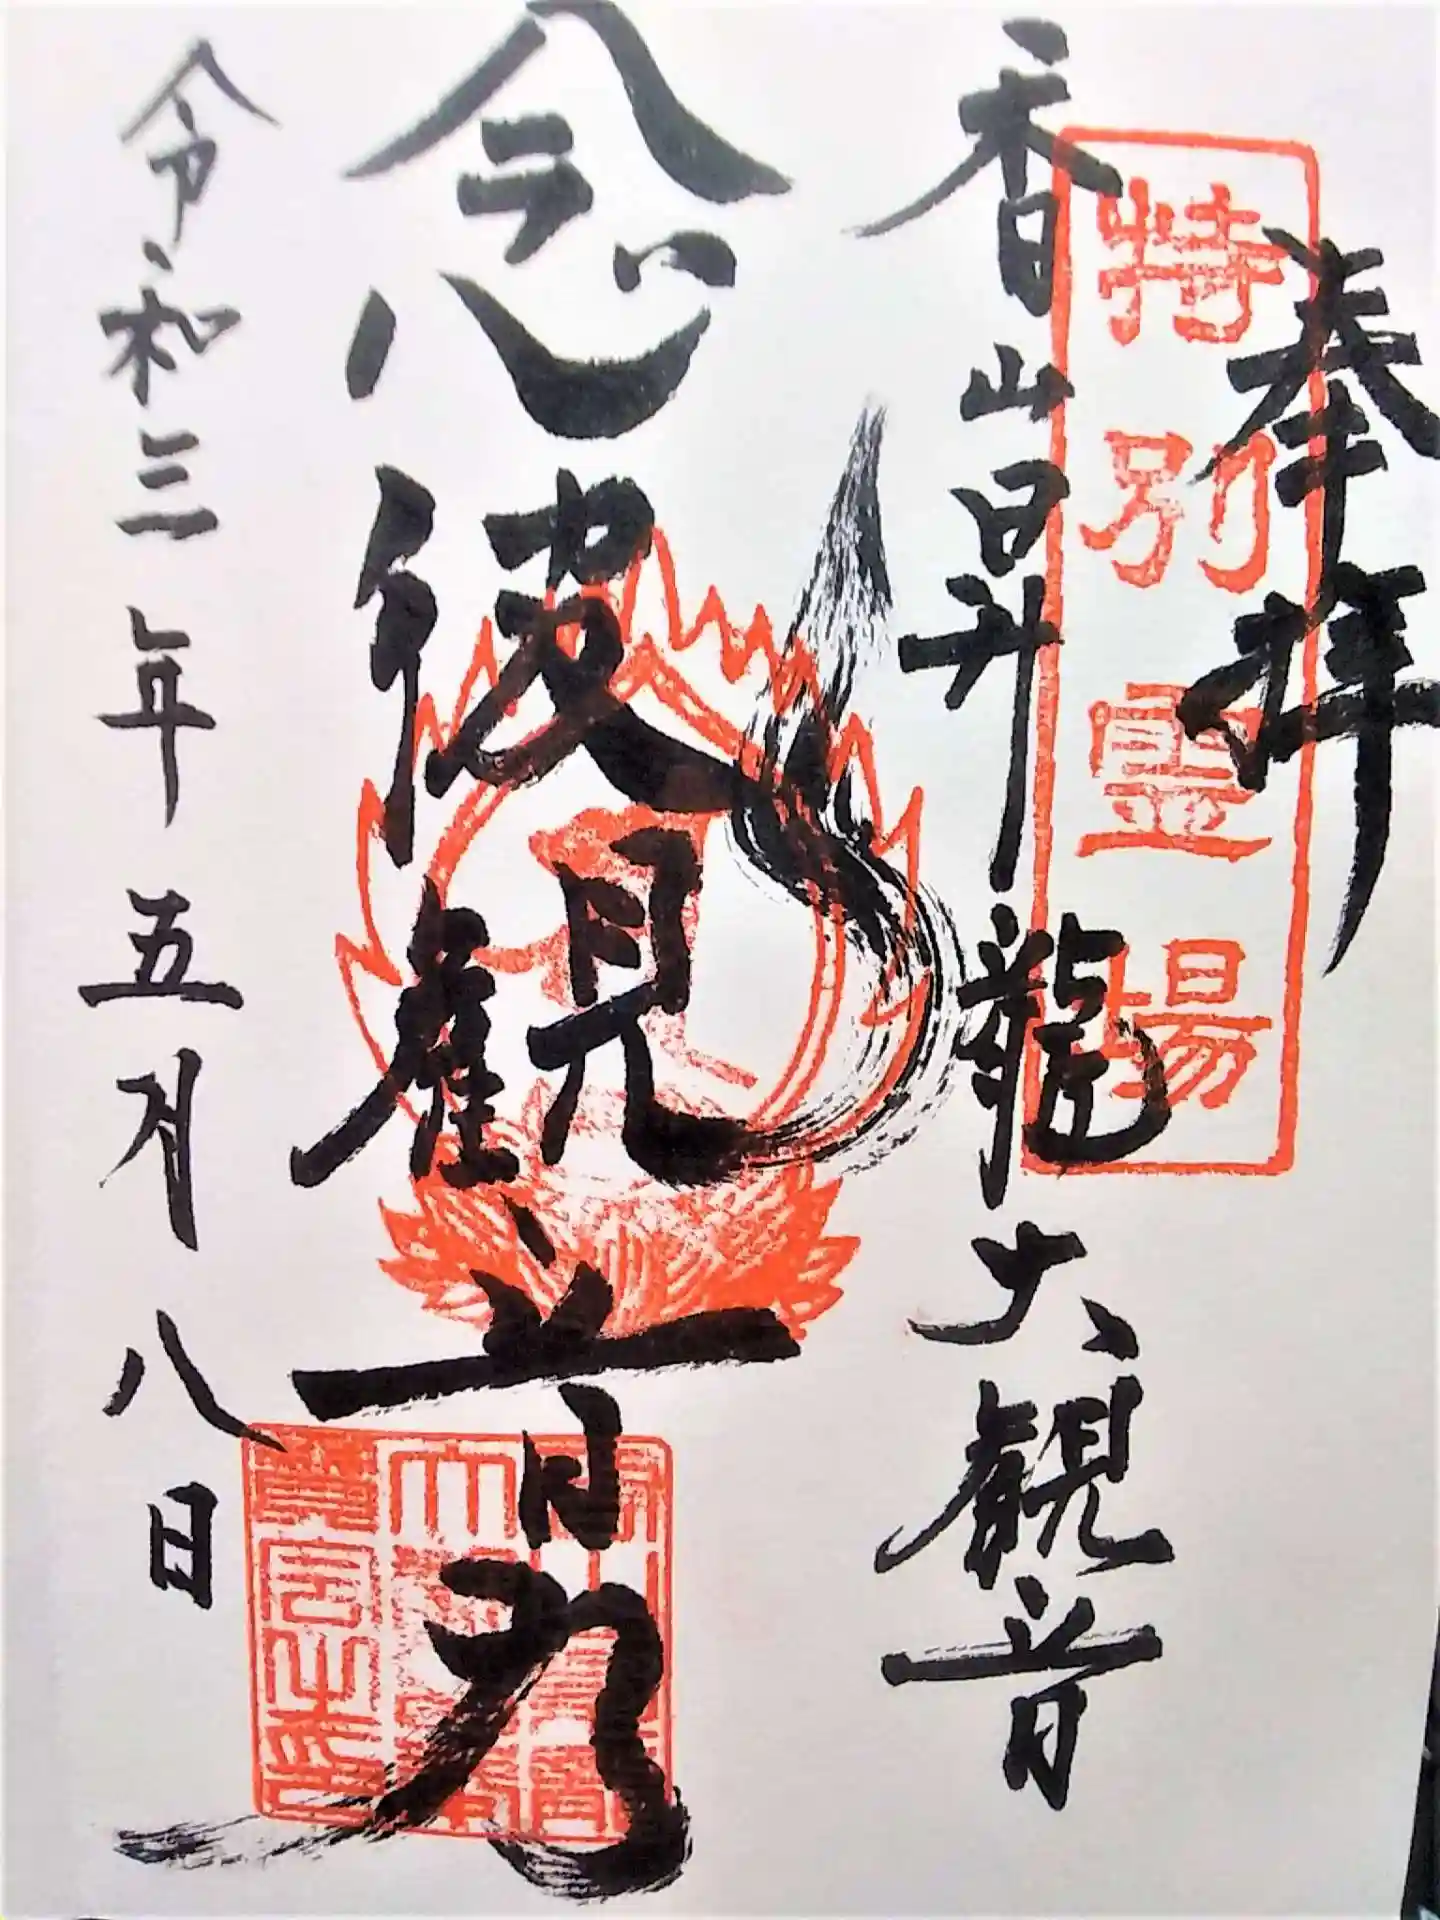 奉拝
特別霊場
香山昇龍大観音
念彼観音力
令和三年五月八日